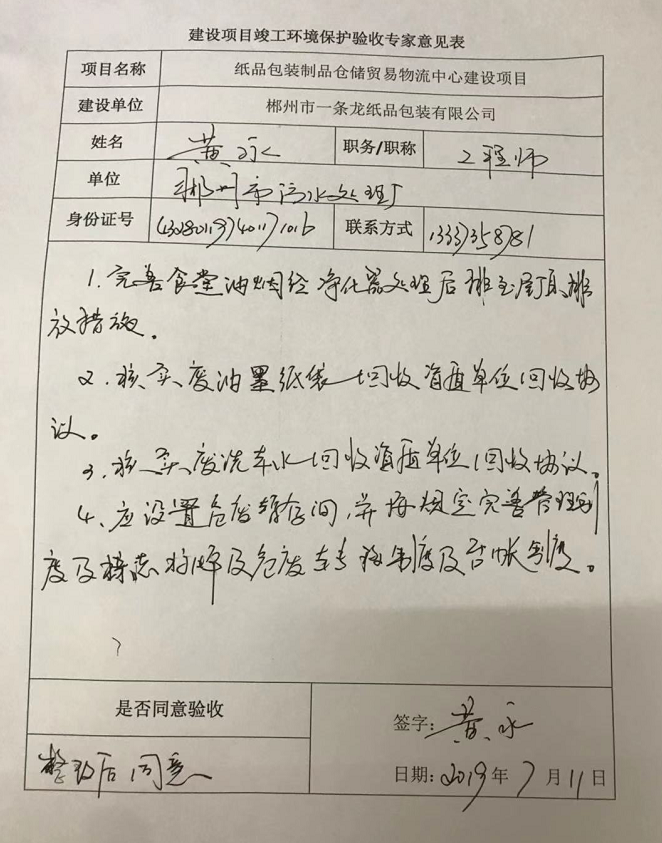 建设项目竣工环境保护验收专家意见表
项目名称 纸品包装制品仓储贸易物流中心建设项目
建设单位 郴州市一条龙纸品包装有限公司
姓名 黄永 职务/职称 工程师
单位 郴州市污水处理厂
身份证号 联系方式
1. 完善食堂油烟经净化器处理后排至屋顶排
放措施。
2. 核实废油墨纸袋回收资质单位回收协
议。
3. 核实废洗车水回收资质单位回收协议。
4. 应设置危废暂存间,并按规定完善管理制
度及标志标牌及危废转移制度及台帐制度。
是否同意验收 签字: 黄永
整改后同意 日期: 2019年7月11日